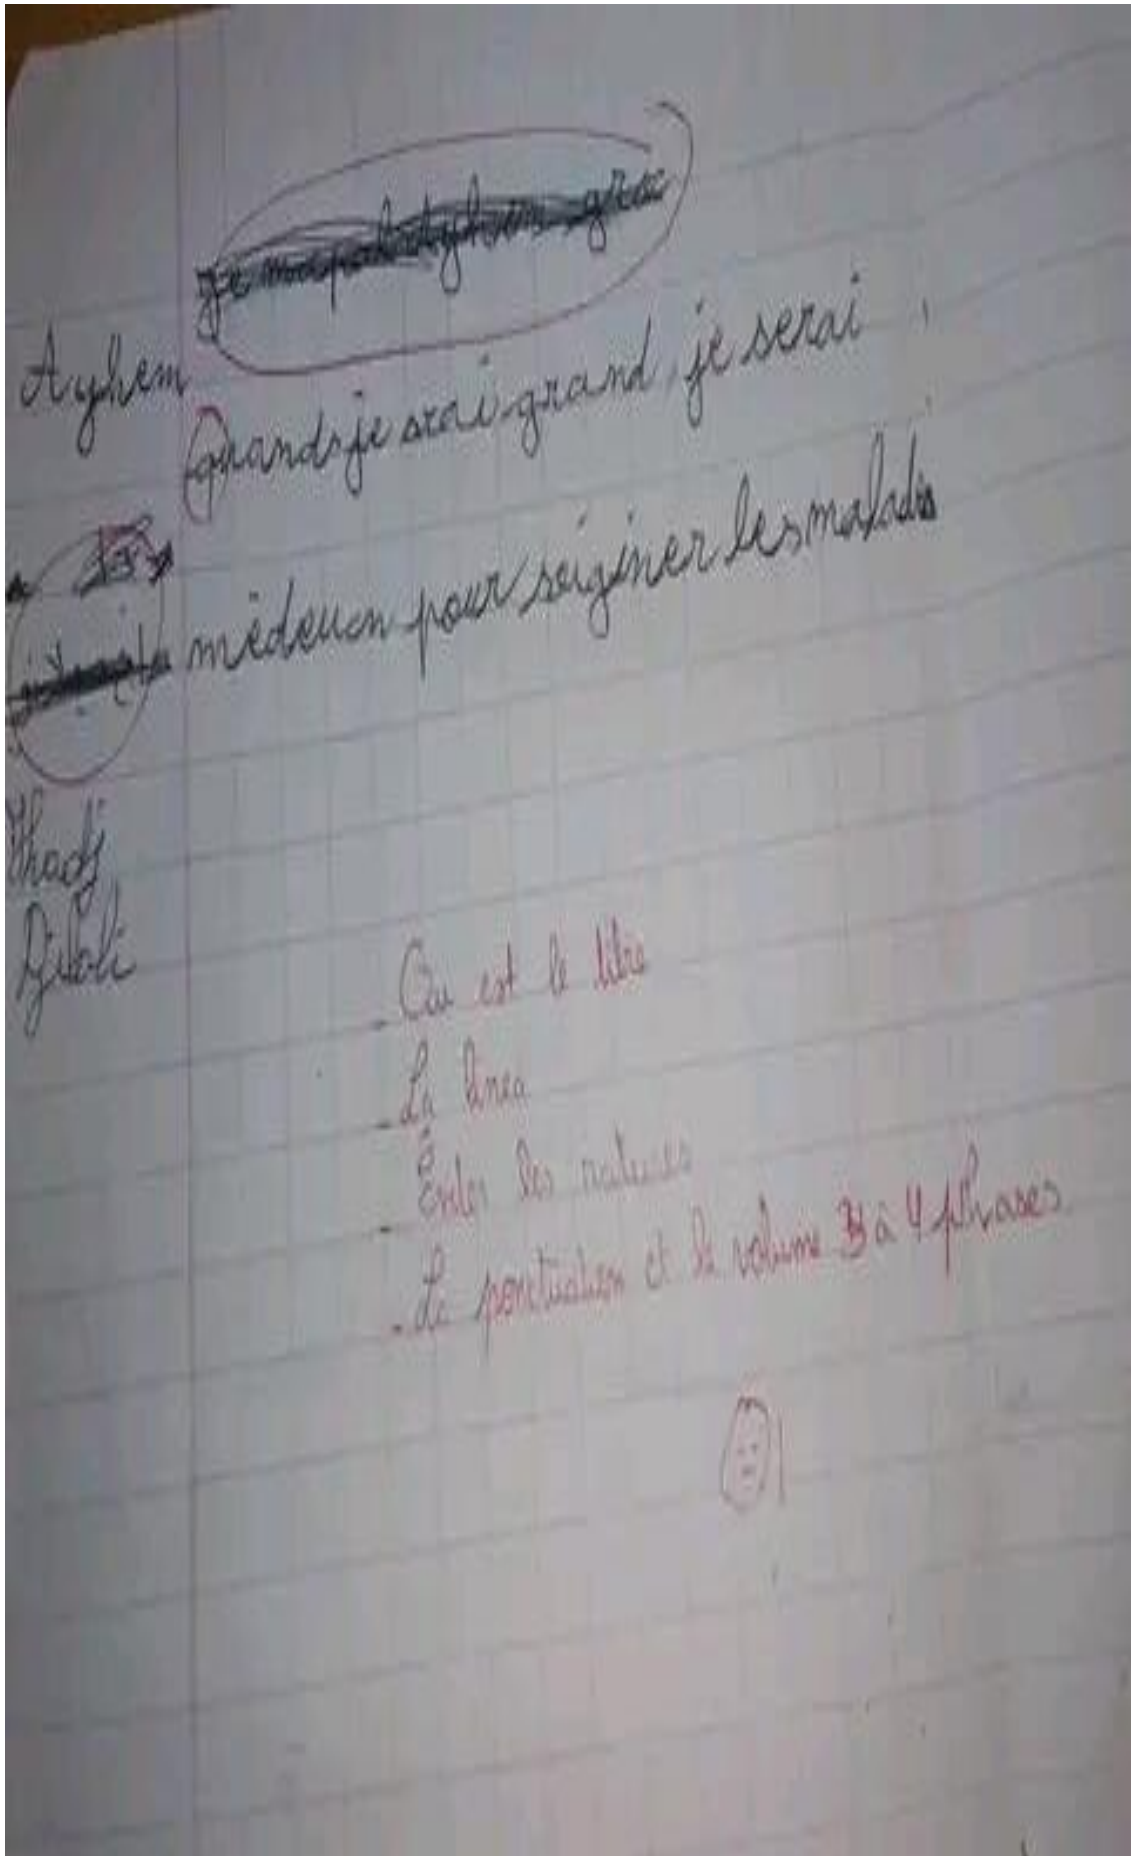 Ayhem
quands je srai grand, je serai
médeucn pour seiginer les malades
Khadj
Djiloli
- Ou est le titre
- La linea
- Éviter les ratures
- La ponctuation et le volume 3 à 4 phrases.